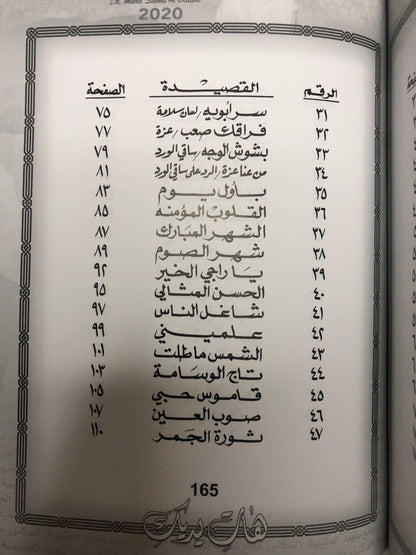 2020
الرقم القصيدة الصفحة
٣١ سر أبويه / لعان سلامة ٧٥
٣٢ فراقك صعب / عزة ٧٧
٣٣ بشوش الوجه / ساقي الورد ٧٩
٣٤ من عنا عزة / الرد على ساقي الورد ٨١
٣٥ بأول يوم ٨٣
٣٦ القلوب المؤمنه ٨٥
٣٧ الشهر المبارك ٨٧
٣٨ شهر الصوم ٨٩
٣٩ يا راجي الخير ٩٢
٤٠ الحسن المثالي ٩٥
٤١ شاغل الناس ٩٧
٤٢ علميني ٩٩
٤٣ الشمس ما طلت ١٠١
٤٤ تاج الوسامة ١٠٣
٤٥ قاموس حبي ١٠٥
٤٦ صوب العين ١٠٧
٤٧ ثورة الجمر ١١٠
165
هات يديك